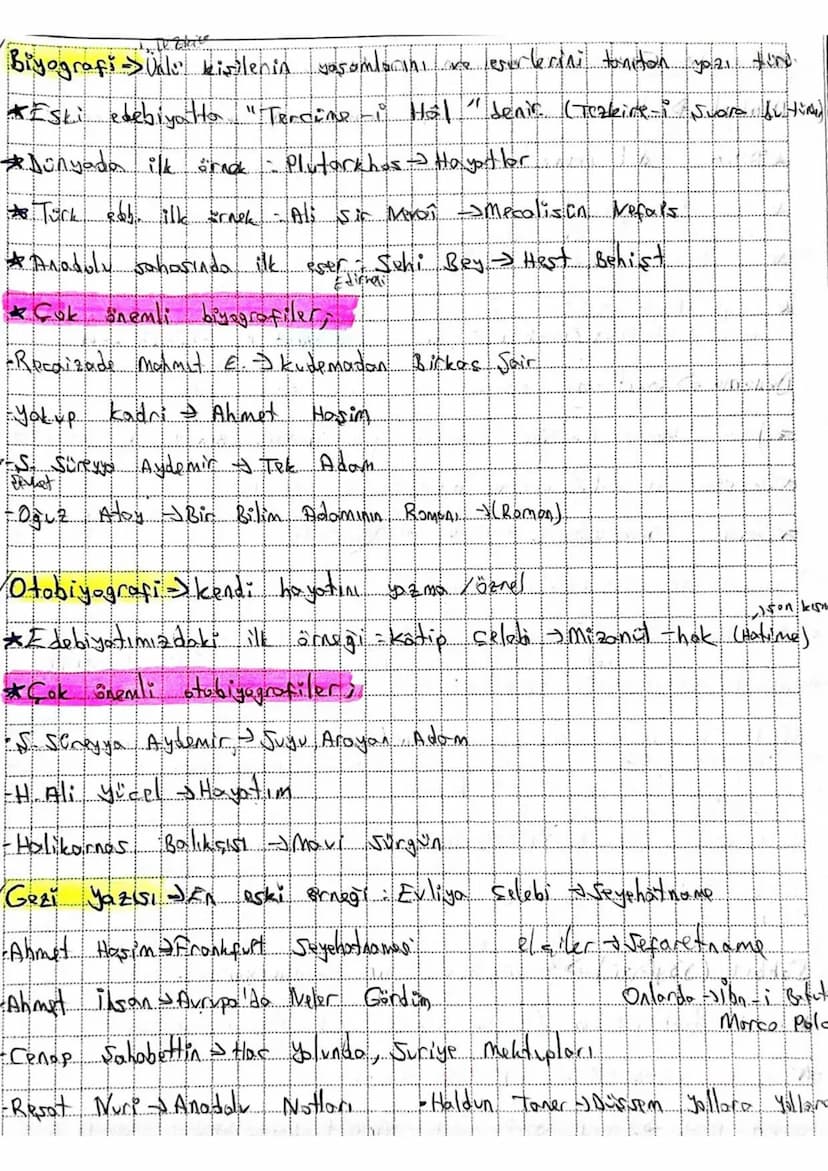 Tezkire
Biyografi → Ünlü kişilerin yaşamlarını ve eserlerini tanıtan yazı türü.
* Eski edebiyatta "Tercüme-i Hâl" denir. (Tezkire-i Şuara bu türdür)
* Dünyada ilk örnek : Plutarkhos → Hayatlar
* Türk edb. ilk örnek : Ali Şir Nevaî → Mecalisün Nefais
* Anadolu sahasında ilk eser : Sehi Bey → Heşt Behişt
Edirneli
* Çok önemli biyografiler;
- Recaizade Mahmut E. → Kudemadan Birkaç Şair
- Yakup Kadri → Ahmet Haşim
- Ş. Süreyya Aydemir → Tek Adam
Şevket
- Oğuz Atay → Bir Bilim Adamının Romanı → (Roman)
Otobiyografi → Kendi hayatını yazma / öznel
→ son kısım
* Edebiyatımızdaki ilk örneği : Kâtip Çelebi → Mizanül-hak (Hatime)
* Çok önemli otobiyografiler;
- Ş. Süreyya Aydemir → Suyu Arayan Adam
- H. Ali Yücel → Hayatım
- Halikarnas Balıkçısı → Mavi Sürgün
Gezi Yazısı → En eski örneği : Evliya Çelebi → Seyehâtname
- Ahmet Haşim → Frankfurt Seyehatnamesi elçiler → Sefaretname
- Ahmet İhsan → Avrupa'da Neler Gördüm Onlarda → İbn-i Batut
Marco Polo
- Cenap Şahabettin → Hac Yolunda, Suriye Mektupları
- Reşat Nuri → Anadolu Notları - Haldun Taner → Düşsem Yollara Yollara